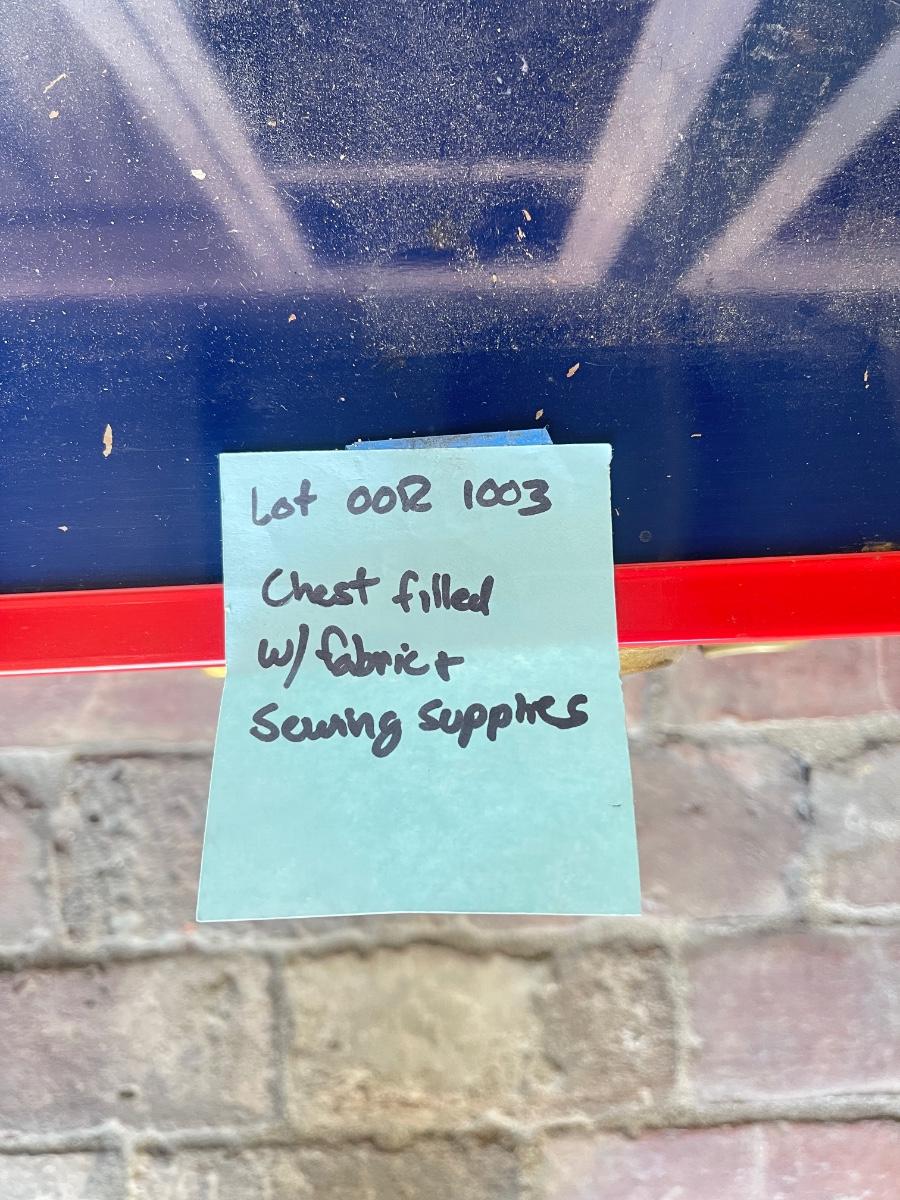 Lot OOR 1003
Chest filled
w/ fabric +
Sewing supplies